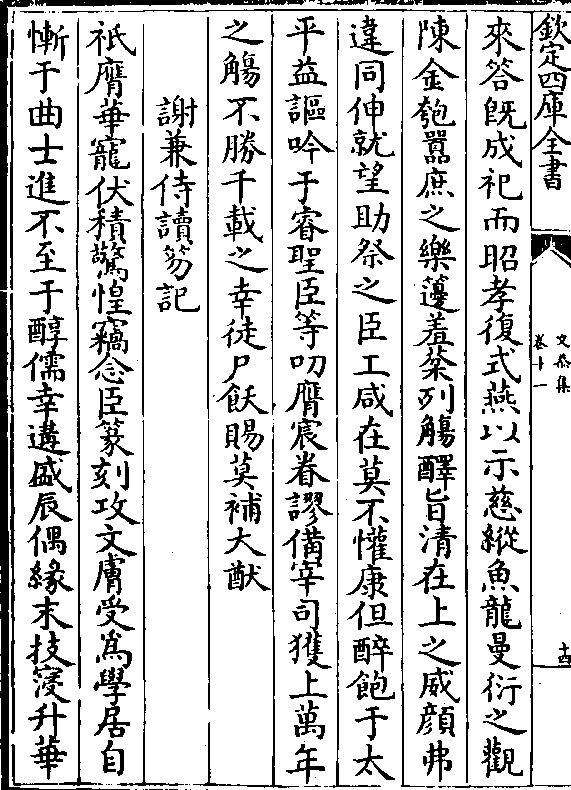 欽定四庫全書
文恭集
卷十一
十四
來答旣成祀而昭孝復式燕以示慈縱魚龍曼衍之觀
陳金匏嚚庶之樂籩羞粲列觴醳旨清在上之威顔弗
違同伸就望助祭之臣工咸在莫不懽康但醉飽于太
平益謳吟于睿聖臣等叨膺宸眷謬備宰司獲上萬年
之觴不勝千載之幸徒尸飫賜莫補大猷
謝兼侍讀笏記
祇膺華寵伏積驚惶竊念臣篆刻攻文膚受爲學居自
慚于曲士進不至于醇儒幸遘盛辰偶緣末技寖升華